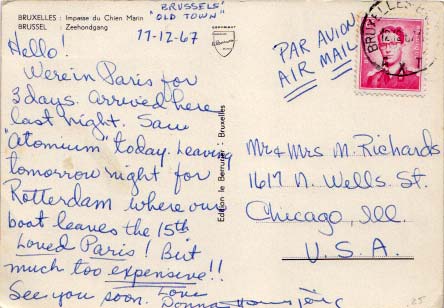 BRUXELLES : Impasse du Chien Marin
BRUSSEL : Zeehondgang
BRUSSELS'
"OLD TOWN"
11-12-67
COPYRIGHT
Hello!
Were in Paris for
3 days. Arrived here
last night. Saw
"Atomium" today. Leaving
tomorrow night for
Rotterdam where our
boat leaves the 15th
Loved Paris! But
much too expensive!!
See you soon. Love
Donna
Edition le Berrurier : Bruxelles
PAR AVION
AIR MAIL
BRUXELLES
Mr & Mrs M. Richards
1617 N. Wells St.
Chicago, Ill.
U.S.A.